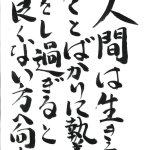 人間は生き
ことばかりに執
をし過ぎると
良くない方へ向